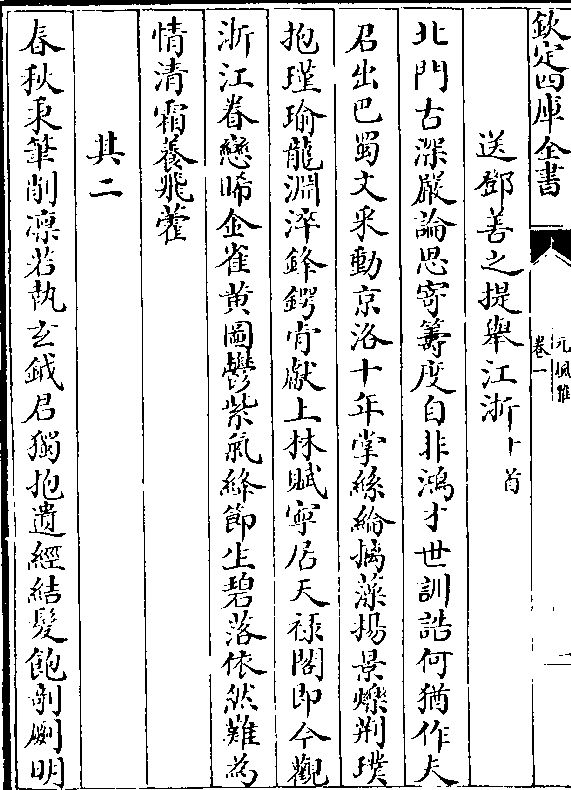 欽定四庫全書
元風雅
卷一
送鄧善之提舉江浙 首
北門古深嚴論思寄籌度自非鴻才世訓誥何猶作夫
君出巴蜀文采動京洛十年掌絲綸摛藻揚景爍荆璞
抱瑾瑜龍淵淬鋒鍔肯獻上林賦寧居天禄閣即今觀
浙江眷戀晞金雀黄圖鬱紫氣絳節生碧落依然難為
情清霜養飛藿
其二
春秋秉筆削凛若執玄鉞君獨抱遺經結髮飽剞劂明